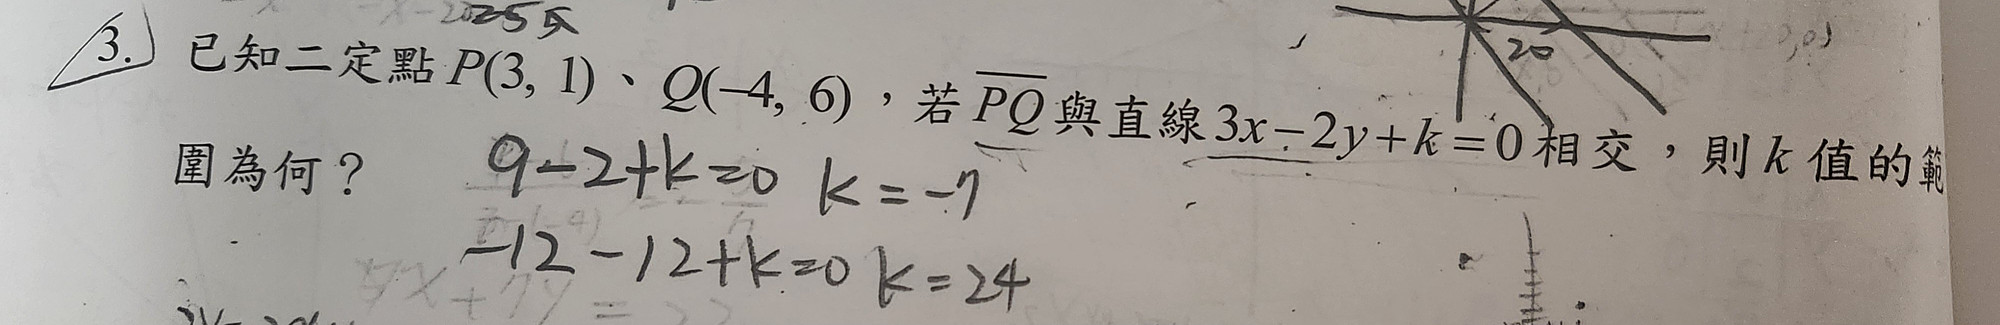 25 5
20
3. 已知二定點 P(3, 1)、Q(−4, 6),若 PQ 與直線 3x−2y+k=0 相交,則 k 值的範
圍為何?
9−2+k=0 k=−7
−12−12+k=0 k=24